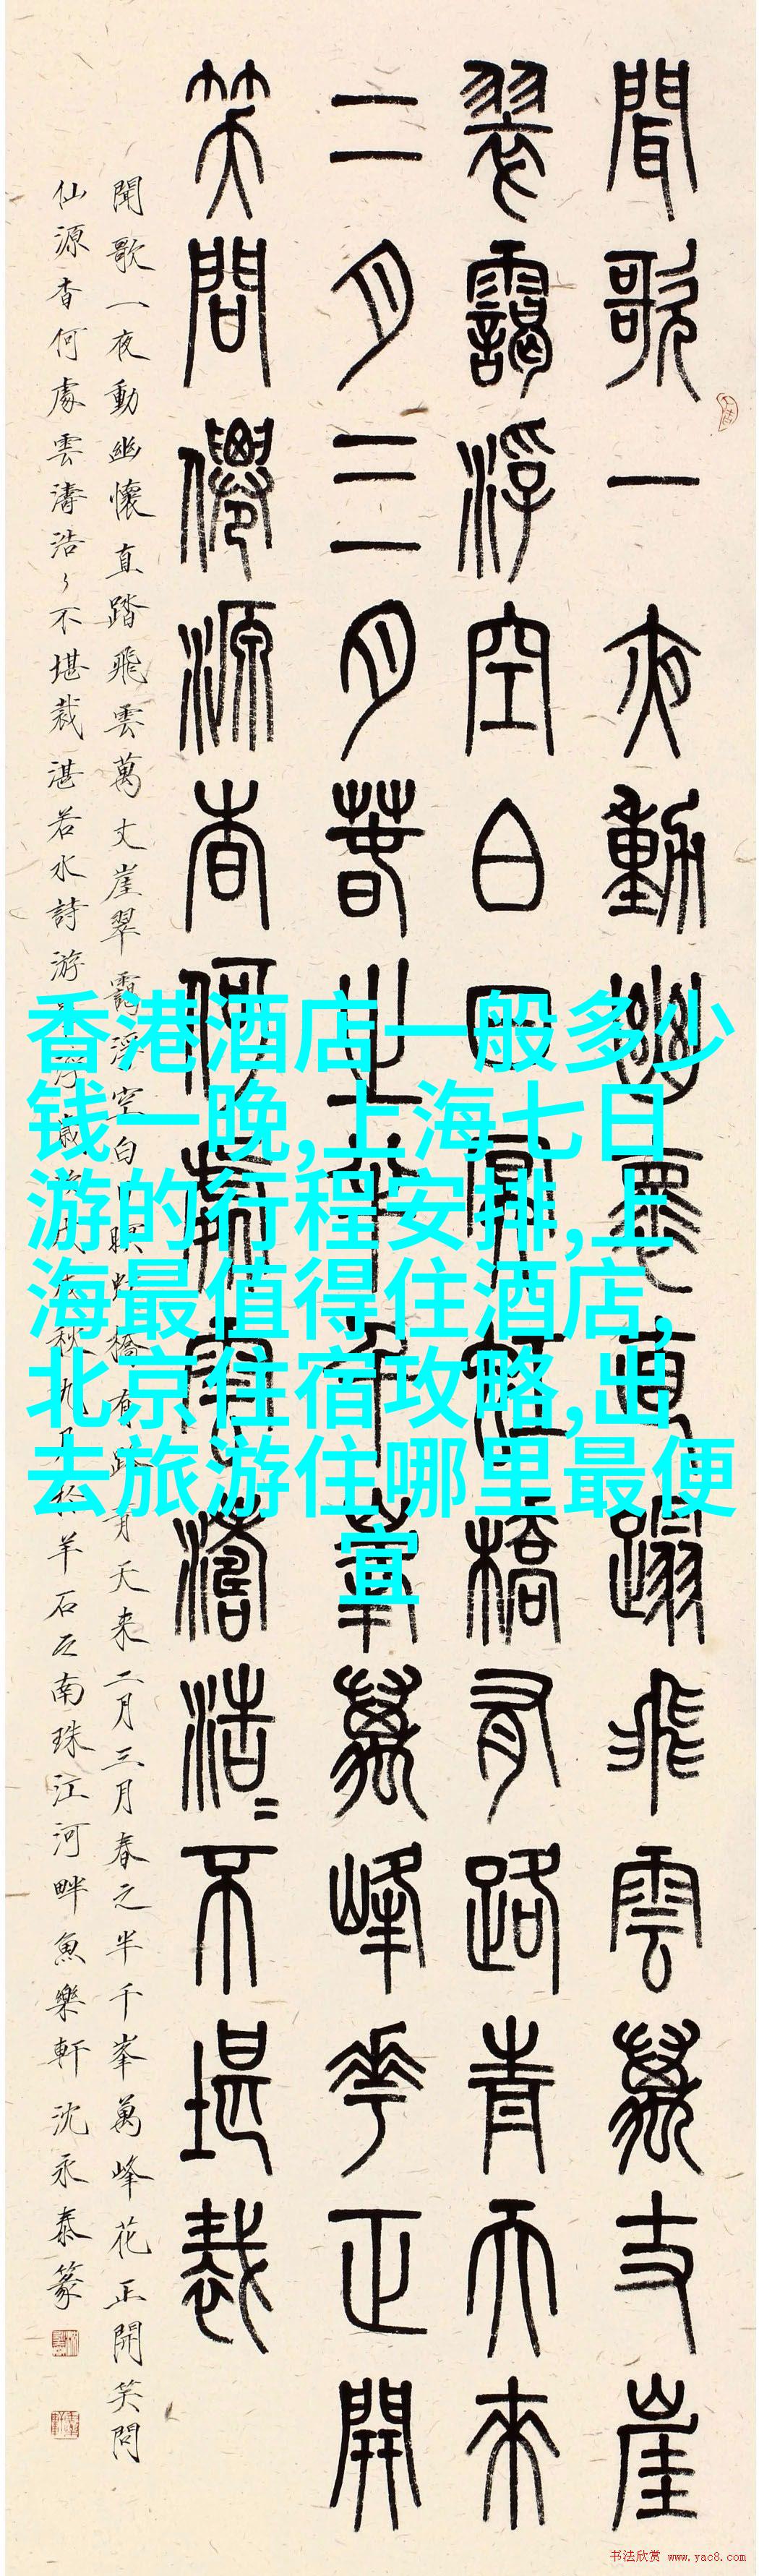 聞歌一夜動幽懷直蹋飛雲萬丈崖
翠靄浮空白日瞑虹橋有路青天來
二月三月春之半千峯萬峰花正開
笑問僊源杳何處雲濤浩〻不堪裁
聞歌一夜動幽懷直踏飛雲萬丈崖翠靄浮空白日瞑虹橋有路青天来二月三月春之半千峯萬峰花正開笑問
仙源杳何處雲濤浩〻不堪裁湛若水詩游浮歲秋九月於羊石之南珠江河畔魚樂軒沈永泰篆
香港酒店一般多少
钱一晚,上海七日
游的行程安排,上
海最值得住酒店,
北京住宿攻略,出
去旅游住哪里最便
宜
书法欣赏 www.yac8.com